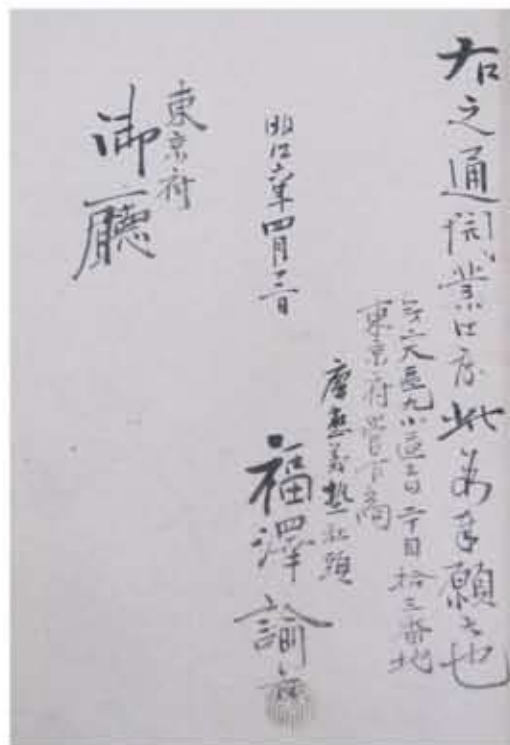 右之通開業仕度此段奉願候也
第二大區九小區三田二丁目拾三番地
東京府管下商
慶應義塾社頭
福澤諭吉
明治六年四月三日
東京府
御廳